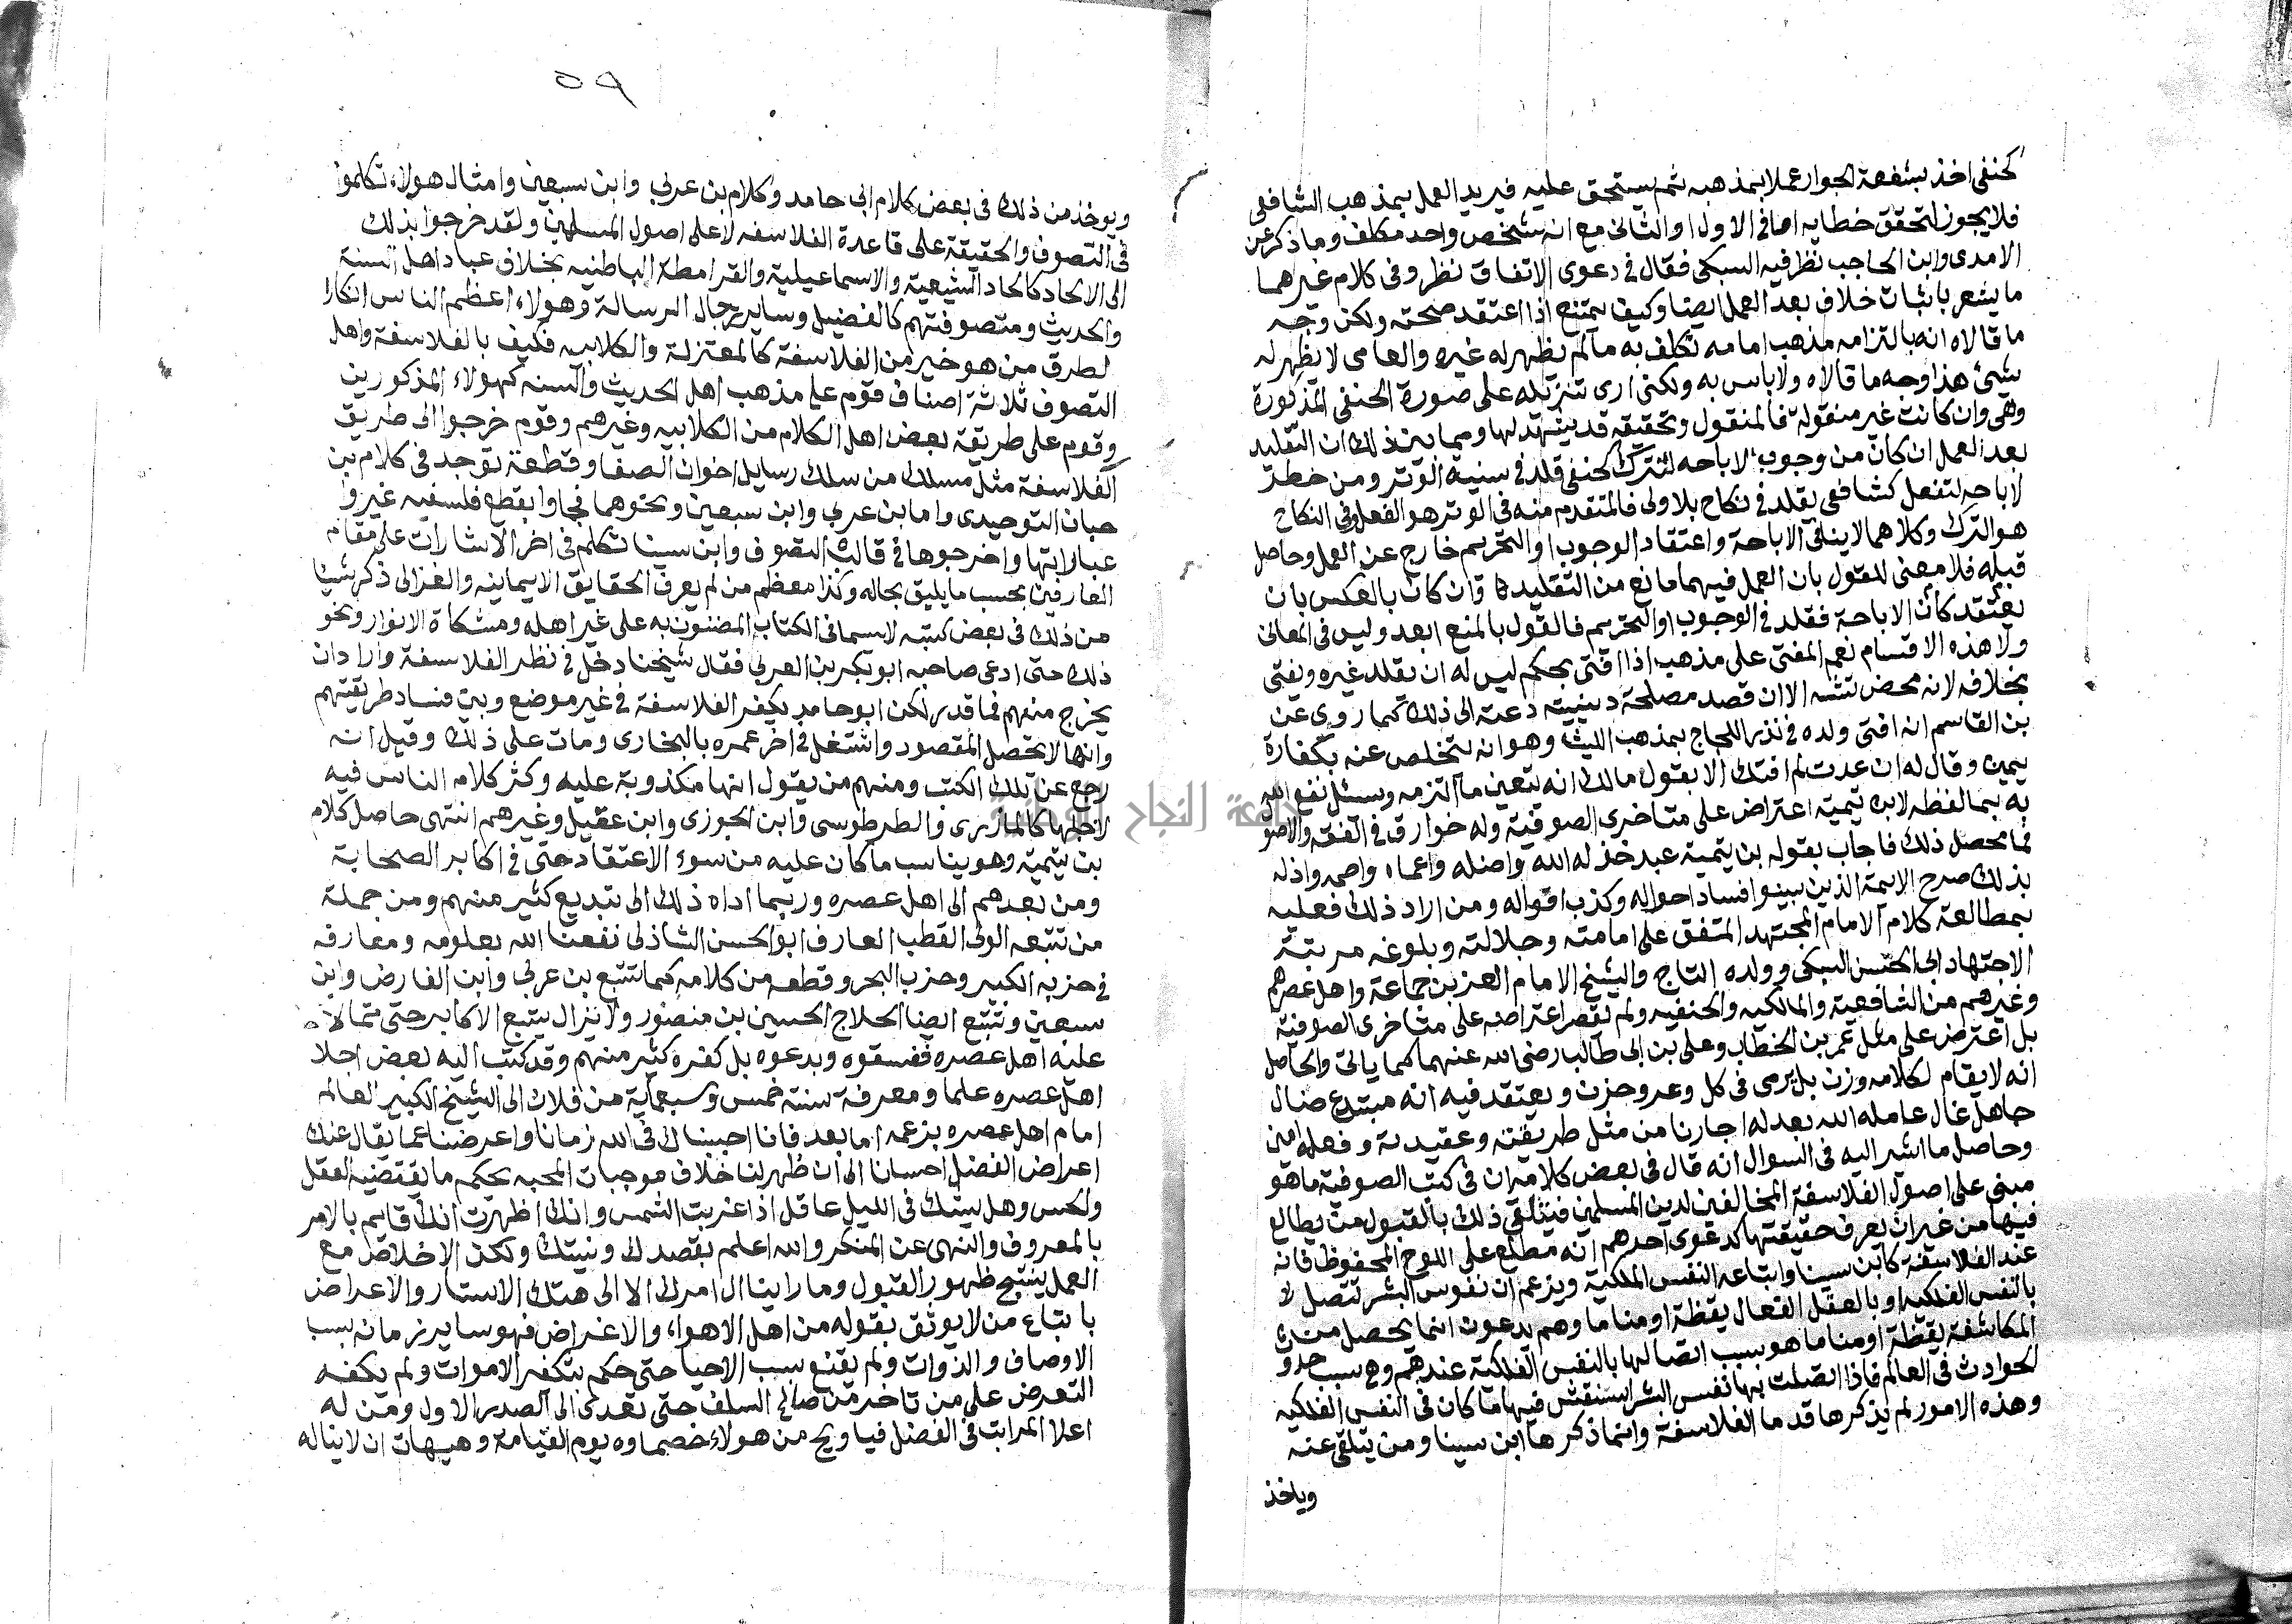 كحنفى اخذ بشفعة الجوار عملا بمذهبه ثم يستحق عليه فيريد العمل بمذهب الشافعى
فلا يجوز لتحقق خطايه اما فى الاول او الثانى مع انه شخص واحد مكلف وما ذكر عن
الامدى وابن الحاجب نظر فيه السبكى فقال فى دعوى الاتفاق نظر وفى كلام غيرهما
ما يشعر باثبات خلاف بعد العمل ايضا وكيف يمتنع اذا اعتقد صحته ولكن وجه
ما قالاه انه بالتزامه مذهب امامه تكلف به ما لم يظهر له غيره والعامى لا يظهر له
شئ هذا وجه ما قالاه ولا باس به ولكنى ارى تنزيله على صورة الحنفى المذكورة
وهى وان كانت غير منقولة فالمنقول وتحقيقه قد يشهد لها ومما يبن ذلك ان التقليد
بعد العمل ان كان من وجوب لاباحه لتترك كحنفى قلد فى سنيه الوتر ومن خطر
لاباحه لتفعل كشافعى يقلد فى نكاح بلا ولى فالمتقدم منه فى الوتر هو الفعل وفى النكاح
هو الترك وكلاهما لا ينافى الاباحة واعتقاد الوجوب او التحريم خارج عن العمل وحاصل
قبله فلا معنى للقول بان العمل فيهما مانع من التقليد وان كان بالعكس بان
يعتقد كان الاباحة فقلد فى الوجوب او التحريم فالقول بالمنع ابعد وليس فى العامى
ولا هذه الاقسام نعم المفتى على مذهب اذا افتى بحكم ليس له ان يقلد غيره ويفتى
بخلافه لانه محض تشه الا ان قصد مصلحة دينية دعته الى ذلك كما روى عن
بن القاسم انه افتى ولده فى نذر اللجاج بمذهب الليث وهو انه يتخلص عنه بكفارة
يمين وقال له ان عدت لم افتك الا بقول مالك انه يتعين ما التزمه وسئل نفع الله
به بما لفظه لابن تيمية اعتراض على متاخرى الصوفية وله خوارق فى الفقه والاصول
فما محصل ذلك فاجاب بقوله بن تيمية عبد خذله الله واضله واعماه واصمه واذله
بذلك صرح الايمة الذين بينوا فساد احواله وكذب اقواله ومن اراد ذلك فعليه
بمطالعة كلام الامام المجتهد المتفق على امامته وجلالته وبلوغه مرتبة
الاجتهاد ابى الحسن السبكى وولده التاج والشيخ الامام العز بن جماعة واهل عصرهم
وغيرهم من الشافعية والمالكيه والحنفيه ولم يقصر اعتراضه على متاخرى الصوفية
بل اعترض على مثل عمر بن الخطاب وعلى بن ابى طالب رضى الله عنهما كما ياتى والحاصل
انه لا يقام لكلامه وزن بل يرمى فى كل وعر وحزن ويعتقد فيه انه مبتدع ضال
جاهل غال عامله الله بعدله اجارنا من مثل طريقته وعقيدته وفعله امين
وحاصل ما اشير اليه فى السوال انه قال فى بعض كلامه ان فى كتب الصوفية ما هو
مبنى على اصول الفلاسفة المخالفين لدين المسلمين فيتلقى ذلك بالقبول من يطالع
فيها من غير ان يعرف حقيقتها كدعوى احدهم انه مطلع على اللوح المحفوظ فانه
عند الفلاسفة كابن سينا واتباعه النفس الملكية ويزعم ان نفوس البشر تتصل
بالنفس الفلكيه او بالعقل الفعال يقظة او مناما وهم يدعون ان ما يحصل من
المكاشفة يقظة او مناما هو بسبب اتصالها بالنفس الفلكية عندهم وهى سبب حدوث
لحوادث فى العالم فاذا اتصلت بها نفس البشر استنقش فيها ما كان فى النفس الفلكيه
وهذه الامور لم يذكرها قدما الفلاسفة وانما ذكرها ابن سينا ومن يتلقى عنه
وياخذ
٥٩
ويوخذ من ذلك فى بعض كلام ابى حامد وكلام بن عربى وابن سبعين وامثال هولاء تكلموا
فى التصوف والحقيقة على قاعدة الفلاسفه لا على اصول المسلمين ولقد خرجوا بذلك
الى الالحاد كالحاد الشيعية والاسماعيلية والقرامطة الباطنيه بخلاف عباد اهل السنة
والحديث ومتصوفتهم كالفضيل وساير رجال الرسالة وهولاء اعظم الناس انكارا
لطرق من هو خير من الفلاسفة كالمعتزلة والكلابيه فكيف بالفلاسفة واهل
التصوف ثلاثة اصناف قوم على مذهب اهل الحديث والسنه كهولاء المذكورين
وقوم على طريقة بعض اهل الكلام من الكلابيه وغيرهم وقوم خرجوا الى طريق
الفلاسفة مثل مسلك من سلك رسايل اخوان الصفا وقطعة توجد فى كلام بن
حبان التوحيدى واما بن عربى وابن سبعين ونحوهما فجاوا بقطع فلسفيه غيروا
عباراتها واخرجوها فى قالب التصوف وابن سينا تكلم فى اخر الاشارات على مقام
العارفين بحسب ما يليق بحاله وكذا معظم من لم يعرف الحقايق الايمانيه والغزالى ذكر شيا
من ذلك فى بعض كتبه لاسيما فى الكتاب المضنون به على غير اهله ومشكاة الانوار ونحو
ذلك حتى ادعى صاحبه ابو بكر بن العربى فقال شيخنا دخل فى نظر الفلاسفة واراد ان
يخرج منهم فما قدر لكن ابو حامد يكفر الفلاسفة فى غير موضع وبين فساد طريقتهم
وانها لا تحصل المقصود واشتغل فى اخر عمره بالبخارى ومات على ذلك وقيل انه
رجع عن تلك الكتب ومنهم من يقول انها مكذوبة عليه وكثر كلام الناس فيه
لاجلها كالمازرى والطرطوسى وابن الجوزى وابن عقيل وغيرهم انتهى حاصل كلام
بن تيمية وهو يناسب ما كان عليه من سوء الاعتقاد حتى فى اكابر الصحابة
ومن بعدهم الى اهل عصره وربما اداه ذلك الى تبديع كثير منهم ومن جملة
من تتبعه الولى القطب العارف ابو الحسن الشاذلى نفعنا الله بعلومه ومعارفه
فى حزبه الكبير وحزب البحر وقطعه من كلامه كما تتبع بن عربى وابن الفارض وابن
سبعين وتتبع ايضا الحلاج الحسين بن منصور ولا يزال يتبع الاكابر حتى تمالا
عليه اهل عصره ففسقوه وبدعوه بل كفره كثير منهم وقد كتب اليه بعض اجلا
اهل عصره علما ومعرفة سنة خمس وسبعماية من فلان الى الشيخ الكبير العالم
امام اهل عصره بزعمه اما بعد فانا احببناك فى الله زمانا واعرضنا عما يقال عنك
اعراض الفضل احسانا الى ان ظهر لنا خلاف موجبات المحبه بحكم ما يقتضيه العقل
والحس وهل يشك فى الليل عاقل اذا غربت الشمس وانك اظهرت انك قايم بالامر
بالمعروف والنهى عن المنكر والله اعلم بقصدك ونيتك ولكن الاخلاص مع
العمل ينتج ظهور القبول وما راينا ال امرك الا الى هتك الاستار والاعراض
باتباع من لا يوثق بقوله من اهل الاهواء والاغراض فهو ساير زمانه يسب
الاوصاف والذوات ولم يقنع بسب الاحيا حتى حكم بتكفير الاموات ولم يكفه
التعرض على من تاخر من صالح السلف حتى تعدى الى الصدر الاول ومن له
اعلا المراتب فى الفضل فياويح من هولاء خصماوه يوم القيامة وهيهات ان لا يناله
جامعة النجاح الوطنية